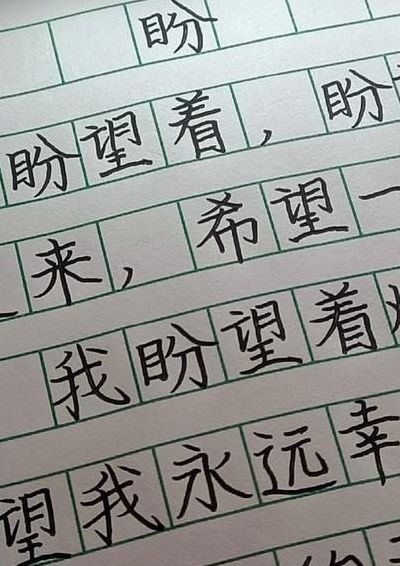 盼
盼望着，盼
来，希望一
我盼望着
望我永远幸